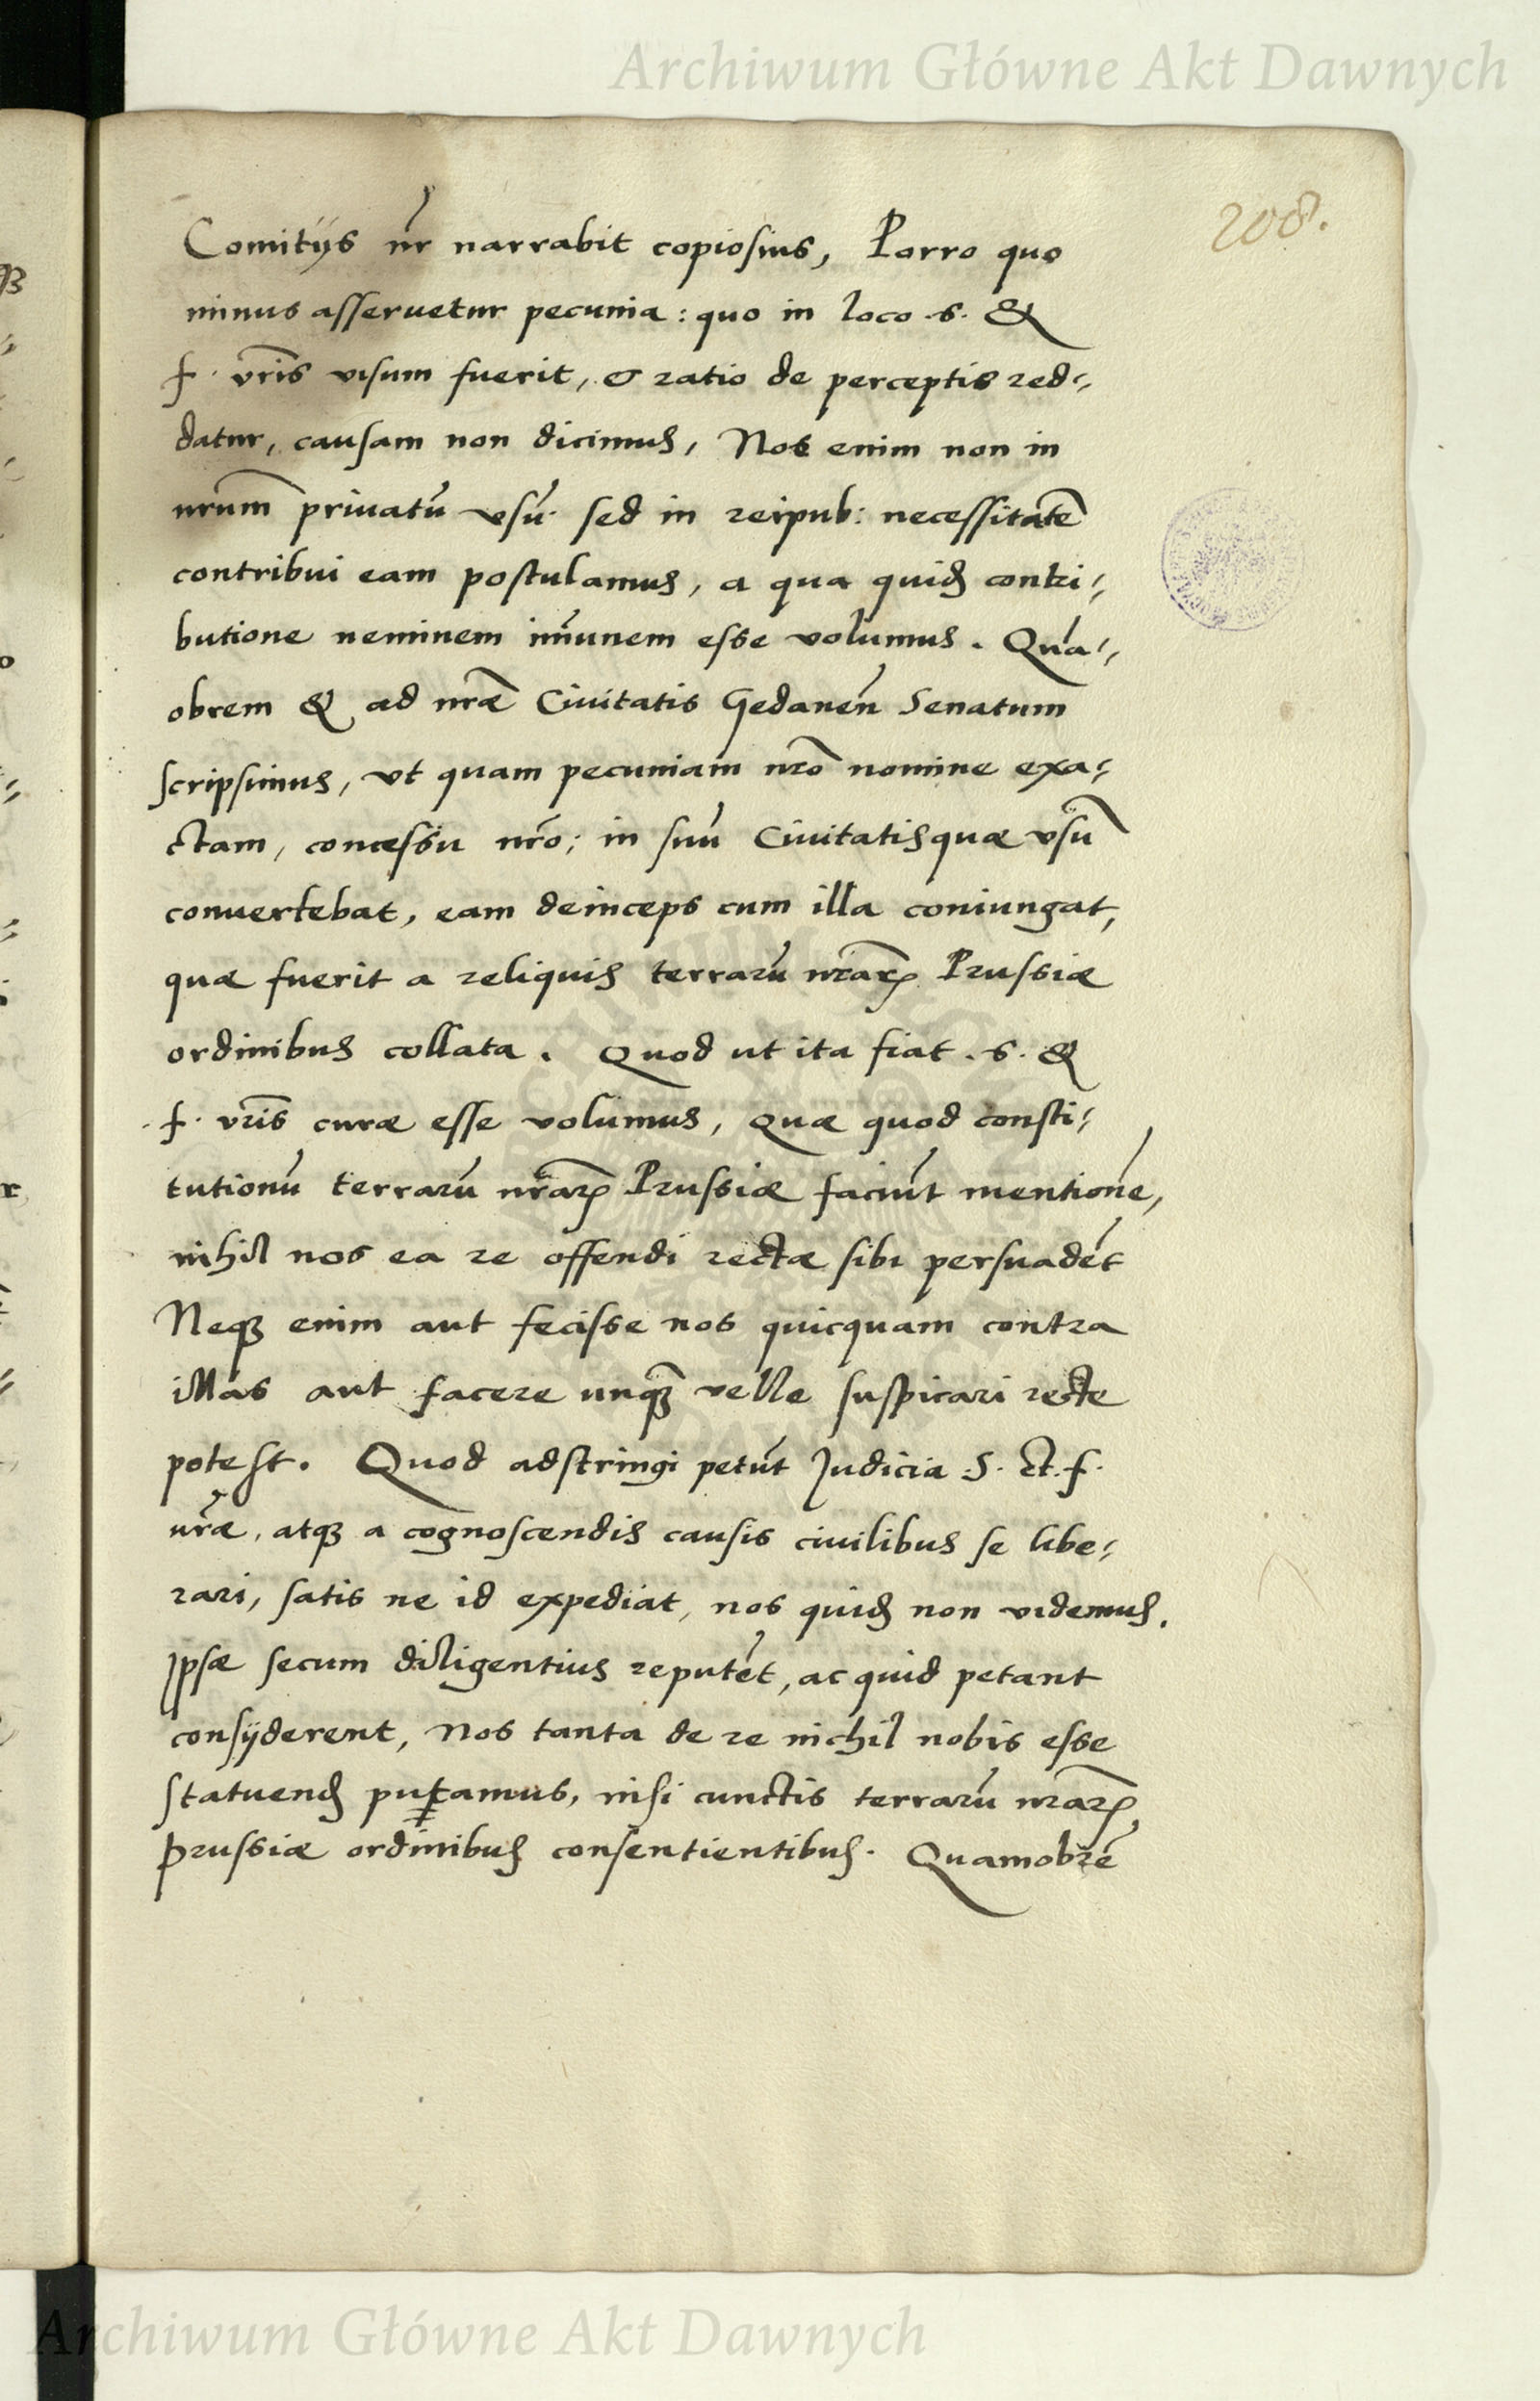 Archiwum Główne Akt Dawnych
208.
Comitijs nr̃ narrabit copiosius, Porro quo
minus asseruetur pecunia: quo in loco .S. &
f. vr̃is visum fuerit, & ratio de perceptis red⸗
datur, causam non dicimus, Nos enim non in
nrũm priuatũ vsũ sed in reipub: necessitatẽ
contribui eam postulamus, a qua quidẽ contri⸗
butione neminem im̃unem esse volumus. Qua⸗
obrem & ad nr̃æ Ciuitatis Gedaneñ Senatum
scripsimus, vt quam pecuniam nr̃o nomine exa⸗
ctam, concessu nr̃o; in suũ Ciuitatisquæ vsũ
conuertebat, eam deinceps cum illa coniungat,
quæ fuerit a reliquis terrarũ nr̃arꝝ Prussiæ
ordinibus collata. Quod ut ita fiat .S. &
.f. vr̃is curæ esse volumus, Quæ quod consti⸗
tutionũ terrarũ nr̃arꝝ Prussiæ faciũt mentionẽ,
nihil nos ea re offendi rectæ sibi persuadẽt
Neqꝫ enim aut fecisse nos quicquam contra
illas aut facere unqꝫ̃ velle suspicari recte
potest. Quod adstringi petũt Judicia .S. et .f.
ur̃æ, atqꝫ a cognoscendis causis ciuilibus se libe⸗
rari, satis ne id expediat, nos quidẽ non videmus.
Ipsæ secum diligentius reputẽt, ac quid petant
consyderent, Nos tanta de re nichil nobis esse
statuendũ putamus, nisi cunctis terrarũ nr̃arꝝ
Prussiæ ordinibus consentientibus. Quamobrẽ
Archiwum Główne Akt Dawnych